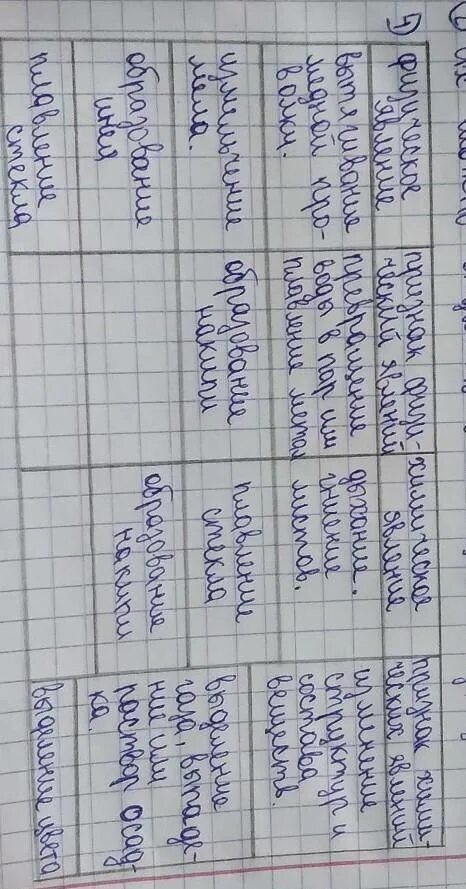 4)
физическое
явление
признак физи-
ческий явлений
химическое
явление
признак хими-
ческих явлений
вытягивание
медной про-
волки.
превращение
воды в пар или
плавление метал
дыхание.
гниение
листов.
изменение
структур и
состава
веществ.
измельчение
мела.
образование
накипи
плавление
стекла
выделение
газа, выпаде-
ние или
раствор осад-
ка.
образование
инея
образование
накипи
плавление
стекла
выделение цвета